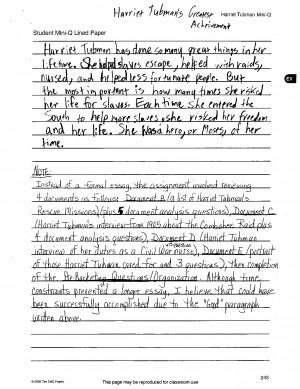 Harriet Tubman's Greatest
Achievement
Harriet Tubman Mini-Q
Student Mini-Q Lined Paper
Harriet Tubman has done so many great things in her
lifetime. She helped slaves escape, helped with raids,
nursed, and helped less fortunate people. But
the most important is how many times she risked
her life for slaves. Each time she entered the
South to help more slaves, she risked her freedom
and her life. She was a hero, or Moses, of her
time.
NOTE:
Instead of a formal essay, the assignment involved reviewing
4 documents as follows: Document B (a list of Harriet Tubman's
Rescue Missions) (plus 5 document analysis questions), Document C
(Harriet Tubman's interview from 1905 about the Combahee Raid plus
4 document analysis questions), Document D (Harriet Tubman
interview of her duties as a Civil War nurse), Document E (portrait
of those Harriet Tubman cared for and 3 questions), then completion
of the Questions/Organization. Although time
constraints prevented a longer essay, I believe that could have
been successfully accomplished due to the "God" paragraph
written above.
243
This page may be reproduced for classroom use